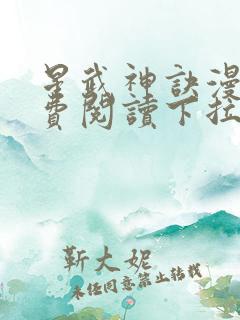 星武神訣漫
費閱讀下拉
靳大妮
未经同意禁止转载